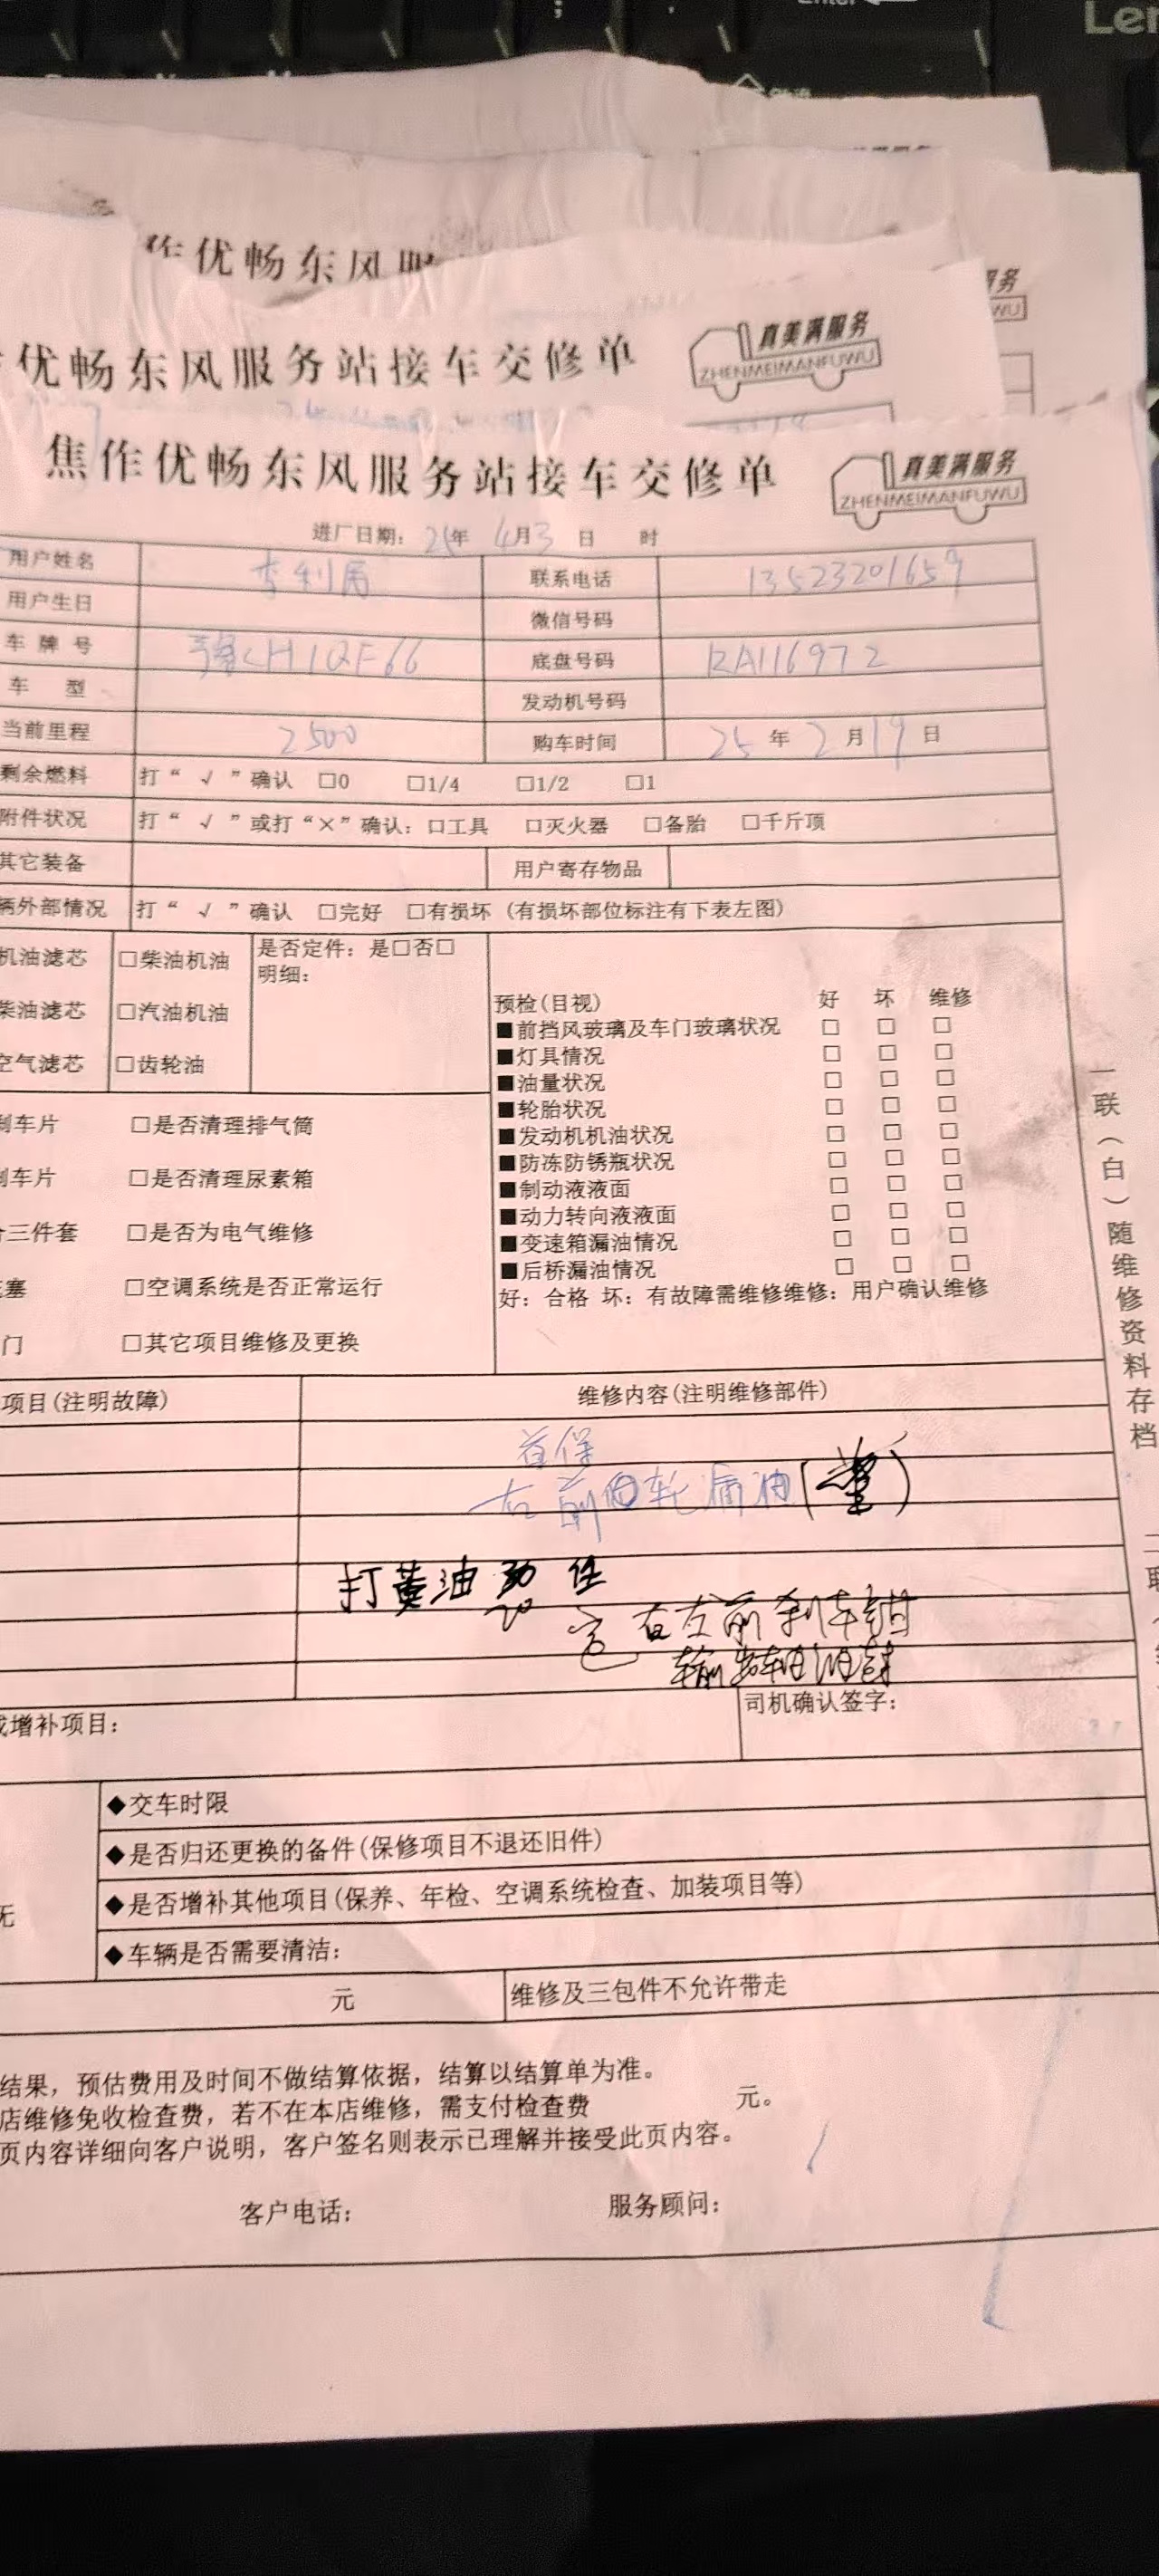 Enter
Len
作优畅东风服
优畅东风服务站接车交修单
真美满服务
ZHENMEIMANFUWU
焦作优畅东风服务站接车交修单
真美满服务
ZHENMEIMANFUWU
进厂日期: 25年 4月3 日 时
用户姓名 联系电话 13523201659
用户生日 微信号码
车牌号 豫CH1QF66 底盘号码 RA116972
车 型 发动机号码
当前里程 2500 购车时间 25 年 2 月 19 日
剩余燃料 打“ √ ”确认 □0 □1/4 □1/2 □1
附件状况 打“ √ ”或打“×”确认: □工具 □灭火器 □备胎 □千斤顶
其它装备 用户寄存物品
辆外部情况 打“ √ ”确认 □完好 □有损坏 (有损坏部位标注有下表左图)
机油滤芯 □柴油机油 是否定件: 是□否□
明细:
柴油滤芯 □汽油机油
空气滤芯 □齿轮油
预检(目视) 好 坏 维修
■前挡风玻璃及车门玻璃状况 □ □ □
■灯具情况 □ □ □
■油量状况 □ □ □
■轮胎状况 □ □ □
■发动机机油状况 □ □ □
■防冻防锈瓶状况 □ □ □
■制动液液面 □ □ □
■动力转向液液面 □ □ □
■变速箱漏油情况 □ □ □
■后桥漏油情况 □ □ □
好: 合格 坏: 有故障需维修维修: 用户确认维修
刹车片 □是否清理排气筒
刹车片 □是否清理尿素箱
三件套 □是否为电气维修
塞 □空调系统是否正常运行
门 □其它项目维修及更换
项目(注明故障) 维修内容(注明维修部件)
首保
右前 轮漏油
打黄油
右左前刹车钳
输
增补项目: 司机确认签字:
◆交车时限
◆是否归还更换的备件(保修项目不退还旧件)
无 ◆是否增补其他项目(保养、年检、空调系统检查、加装项目等)
◆车辆是否需要清洁:
元 维修及三包件不允许带走
结果, 预估费用及时间不做结算依据, 结算以结算单为准。
店维修免收检查费, 若不在本店维修, 需支付检查费 元。
页内容详细向客户说明, 客户签名则表示已理解并接受此页内容。
客户电话: 服务顾问:
一联(白)随维修资料存档